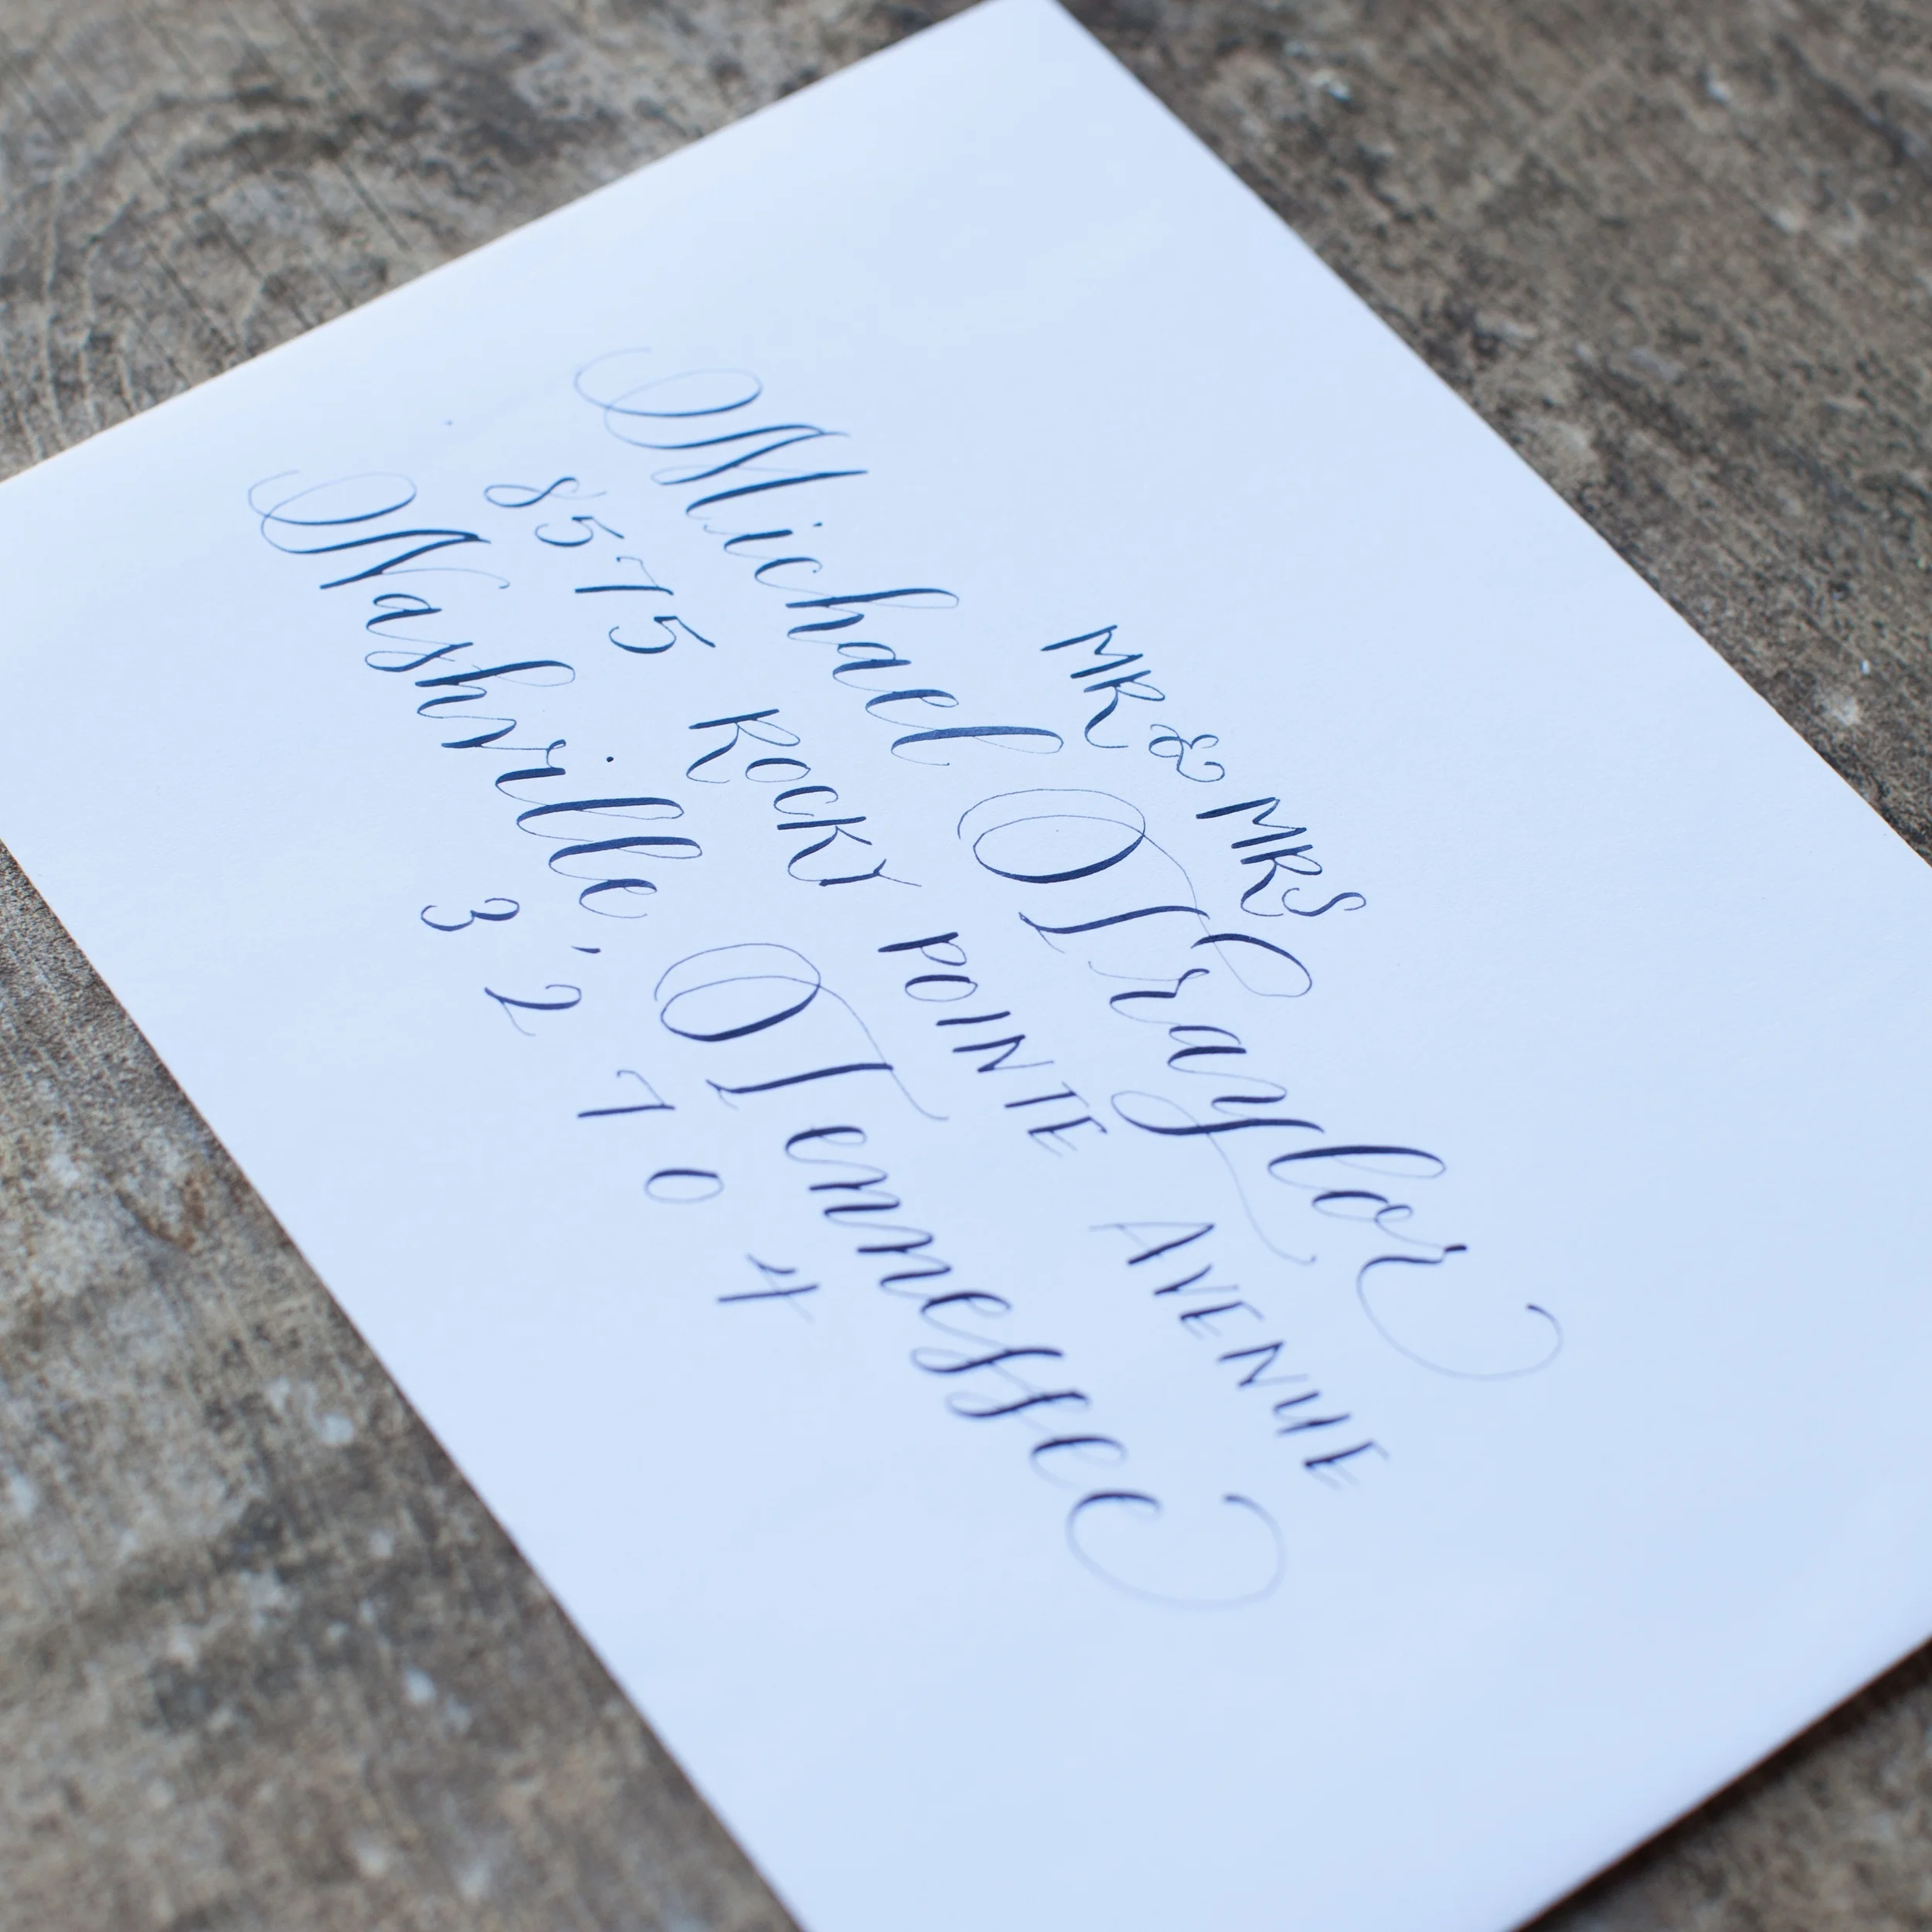 MR & MRS
Michael Traylor
8575 ROCKY POINTE AVENUE
Nashville, Tennessee
3 2 7 0 4